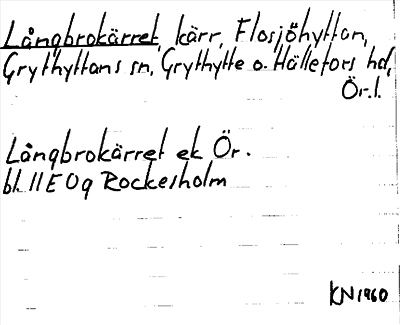 Långbrokärret, kärr, Flosjöhyttan,
Grythyttans sn, Grythytte o. Hällefors hd,
Ör. l.
Långbrokärret ek Ör.
bl. 11E0g Rockesholm
KN 1960